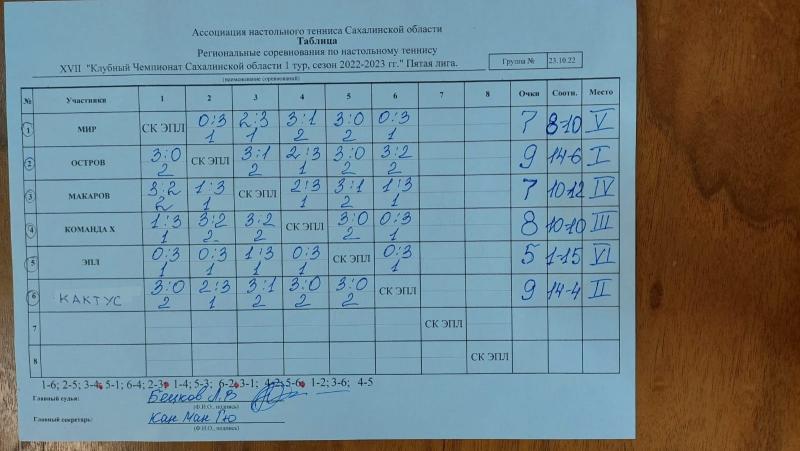 Ассоциация настольного тенниса Сахалинской области
Таблица
Региональные соревнования по настольному теннису
XVII "Клубный Чемпионат Сахалинской области 1 тур, сезон 2022-2023 гг." Пятая лига.
Группа № 23.10.22
(наименование соревнований)
№ Участники 1 2 3 4 5 6 7 8 Очки Соотн. Место
1 МИР СК ЭПЛ 0:3 2:3 3:1 3:0 0:3 7 8-10 V
1 1 2 2 1
2 ОСТРОВ 3:0 СК ЭПЛ 3:1 2:3 3:0 3:2 9 14-6 I
2 2 1 2 2
3 МАКАРОВ 3:2 1:3 СК ЭПЛ 2:3 3:1 1:3 7 10-12 IV
2 1 1 2 1
4 КОМАНДА X 1:3 3:2 3:2 СК ЭПЛ 3:0 0:3 8 10-10 III
1 2 2 2 1
5 ЭПЛ 0:3 0:3 1:3 0:3 СК ЭПЛ 0:3 5 1-15 VI
1 1 1 1 1
6 КАКТУС 3:0 2:3 3:1 3:0 3:0 СК ЭПЛ 9 14-4 II
2 1 2 2 2
7 СК ЭПЛ
8 СК ЭПЛ
1-6; 2-5; 3-4; 5-1; 6-4; 2-3; 1-4; 5-3; 6-2; 3-1; 4-2; 5-6; 1-2; 3-6; 4-5
Главный судья: Бецков Л.В
(Ф.И.О., подпись)
Главный секретарь: Кан Ман Гю
(Ф.И.О., подпись)